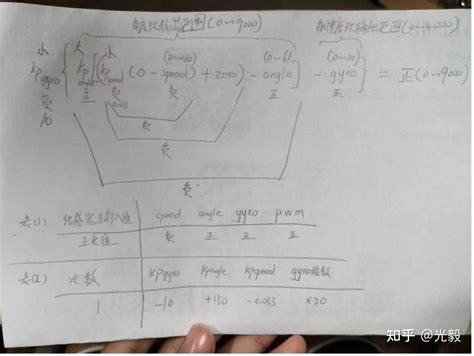 角度环输出范围(0~19000) 角速度环输出范围(0~14000)
小 大 小 (0~180) (0~6) (0~20)
kpgyro{kpangle[kpspeed(0-speed)+zero)-angle]-gyro} = 正(0~19000)
负 正 负 负 正 正
10 0.033
负
负
负
表(1) 传感器与输入值 speed angle gyro pwm
正负值 负 正 正 正
表(2) 次数 kpgyro kpangle kpspeed gyro倍数
1 -10 +150 -0.033 ×20
知乎 @光毅